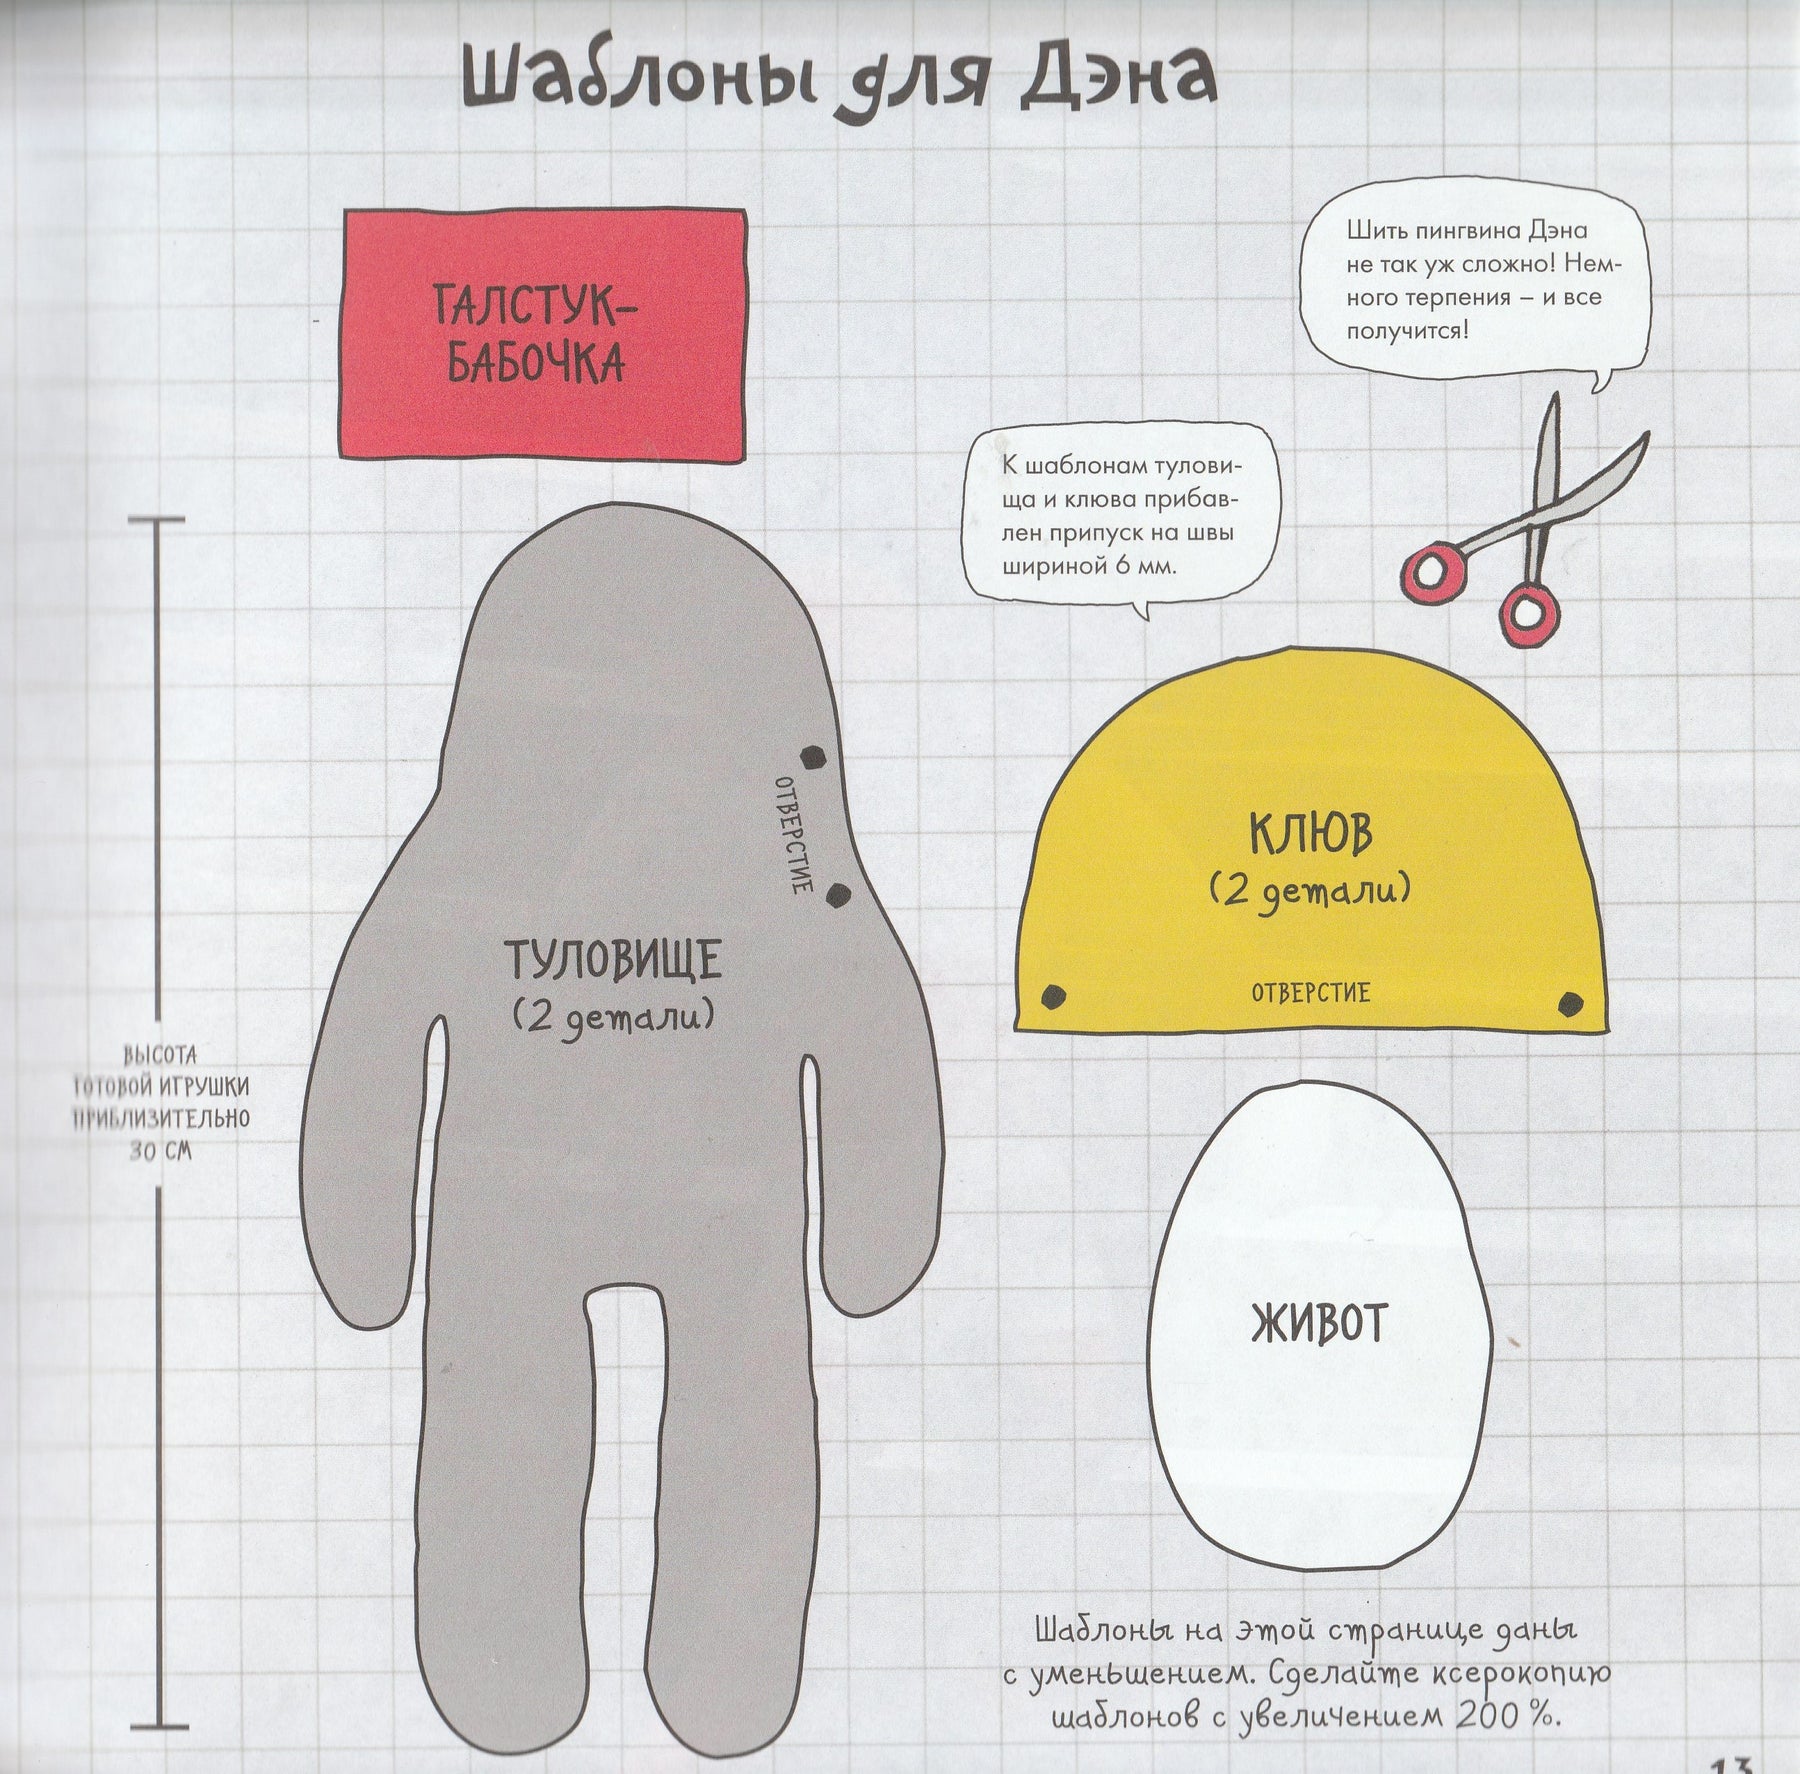 Шаблоны для Дэна
ГАЛСТУК-
БАБОЧКА
Шить пингвина Дэна
не так уж сложно! Нем-
ного терпения – и все
получится!
К шаблонам тулови-
ща и клюва прибав-
лен припуск на швы
шириной 6 мм.
ОТВЕРСТИЕ
ТУЛОВИЩЕ
(2 детали)
КЛЮВ
(2 детали)
ОТВЕРСТИЕ
ВЫСОТА
ГОТОВОЙ ИГРУШКИ
ПРИБЛИЗИТЕЛЬНО
30 СМ
ЖИВОТ
Шаблоны на этой странице даны
с уменьшением. Сделайте ксерокопию
шаблонов с увеличением 200 %.
13